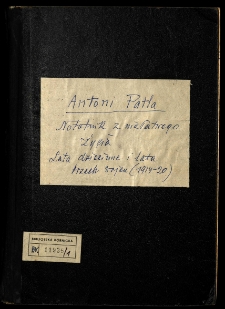 Antoni Patla
Notatnik z niełatwego
życia
Lata dziecinne i lata
trzech wojen (1914-20)
BIBLIOTEKA KÓRNICKA